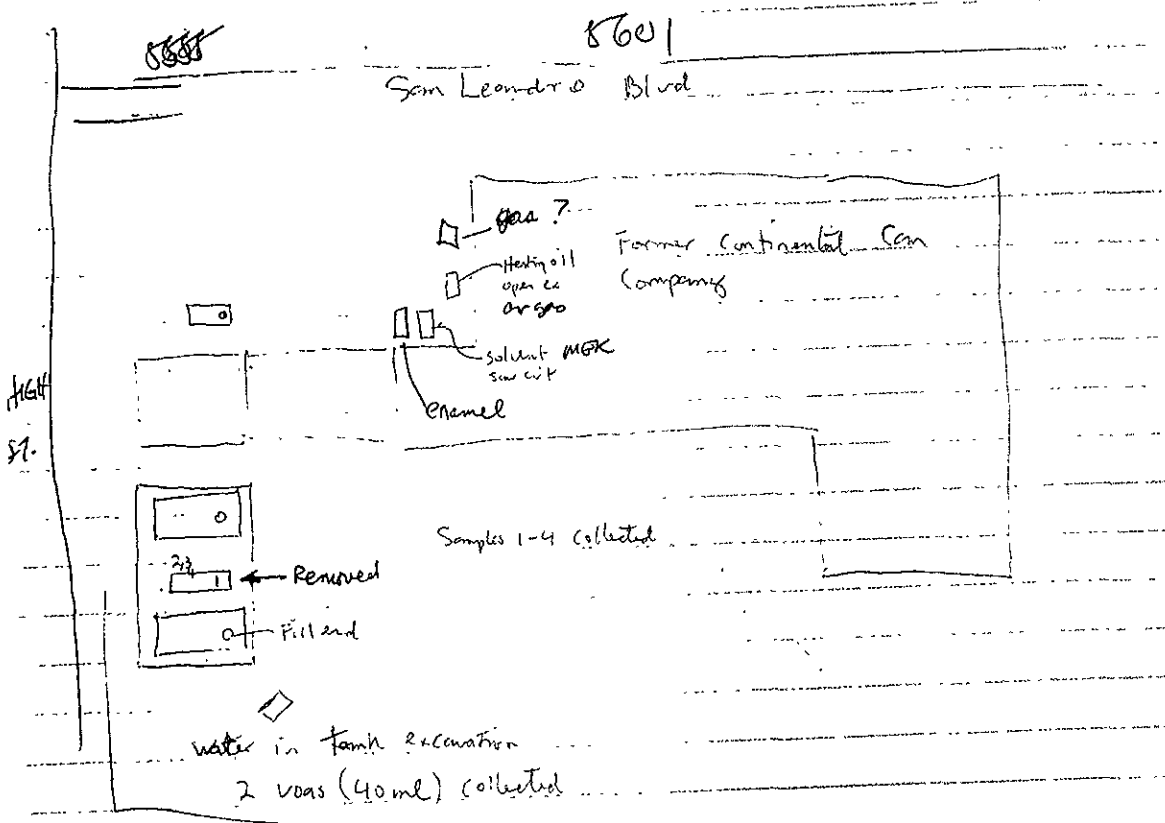 5601
San Leandro Blvd
gas ?
Former Continental Can
Company
Heating oil
open ex
or gas
solvent MEK
enamel
HIGH
ST.
Samples 1-4 collected
2,3,
1
Removed
Fill end
water in tank excavation
2 voas (40 ml) collected